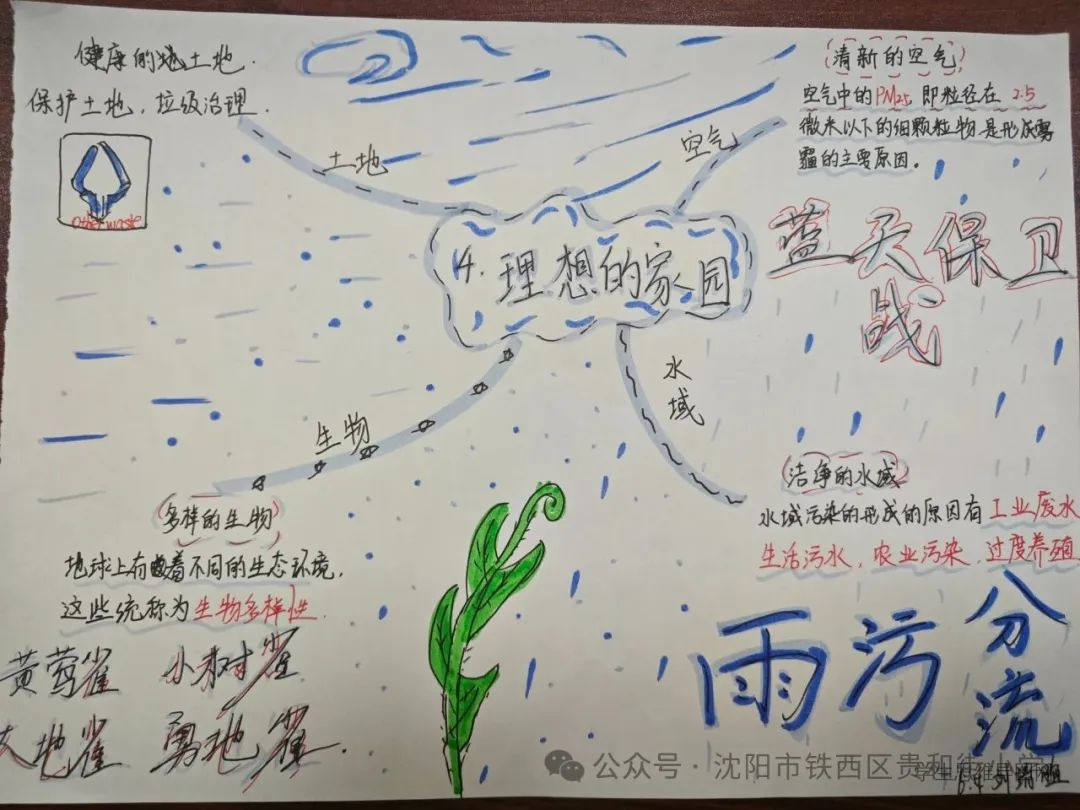 健康的土地.
保护土地，垃圾治理.
other waste
土地
空气
清新的空气
空气中的PM2.5即粒径在2.5
微米以下的细颗粒物是形成雾
霾的主要原因。
蓝天保卫
战
4.理想的家园
生物
水域
多样的生物
地球上有着不同的生态环境,
这些统称为生物多样性.
黄莺雀 小树雀
大地雀 勇地雀.
洁净的水域
水域污染的形成的原因有工业废水
生活污水，农业污染，过度养殖
雨污分流
公众号·沈阳市铁西区贵和街